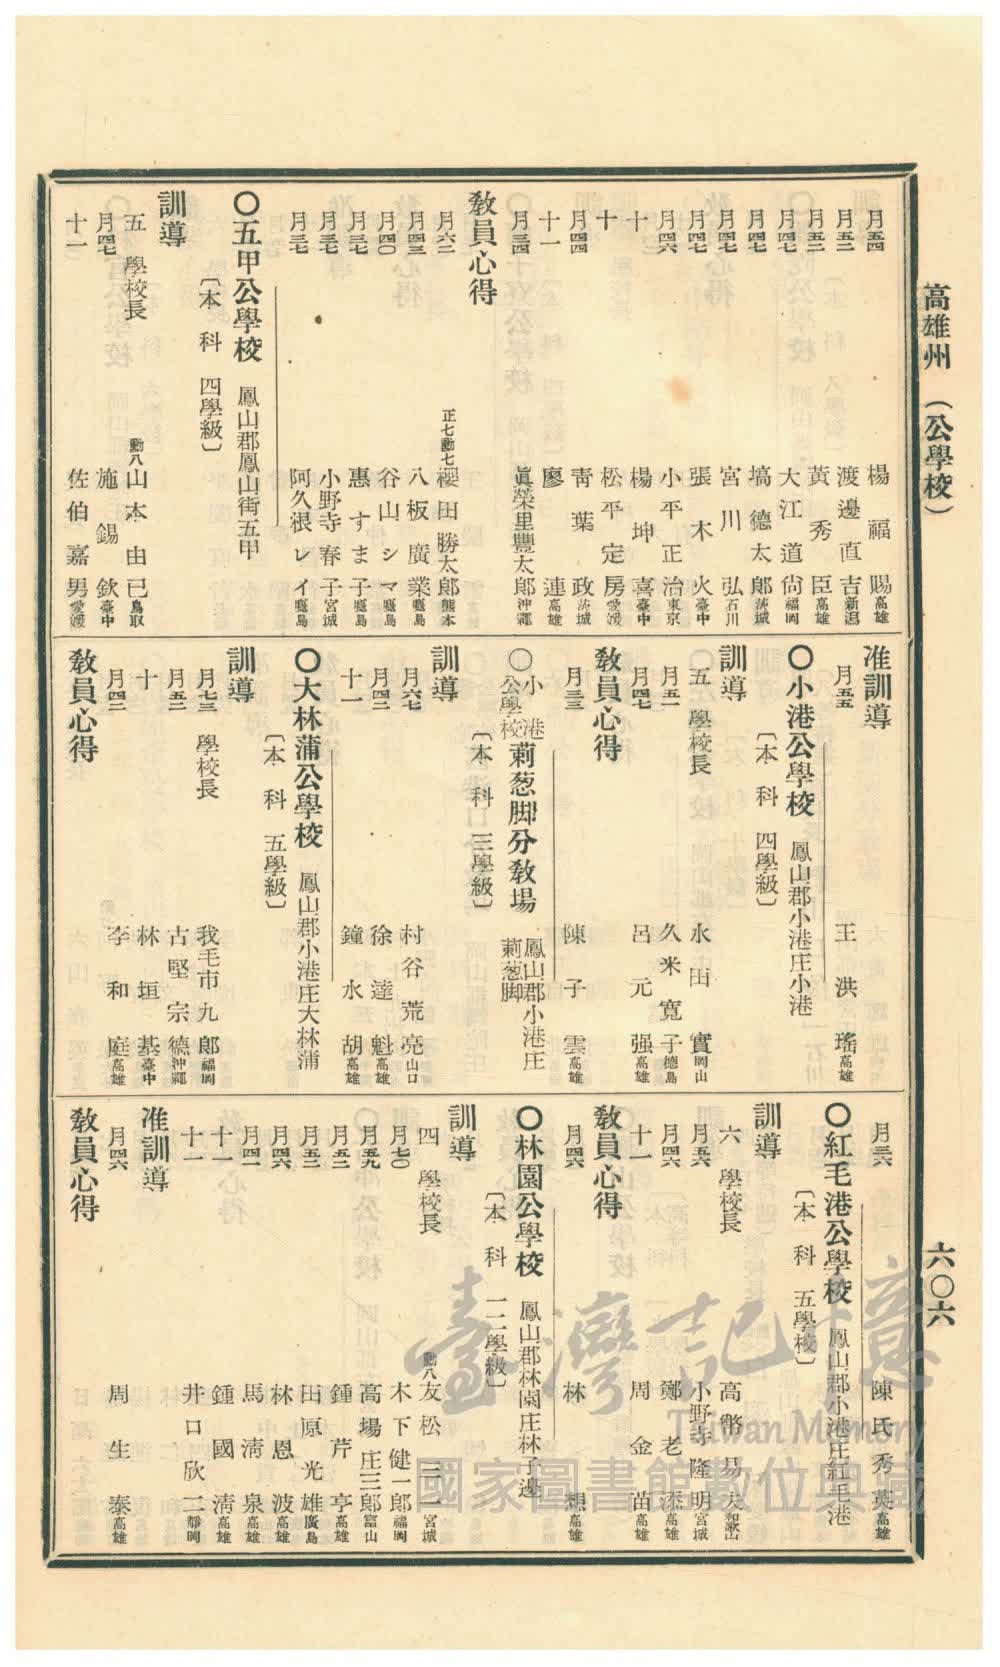 高雄州 (公學校)
六〇六
月五四 楊福賜 高雄
月五二 渡邊直吉 新潟
月五二 黃秀臣 高雄
月四七 大江道尙 福岡
月四七 塙德太郞 茨城
月四七 宮川弘 石川
月四七 張木火 臺中
月四六 小平正治 東京
十 楊坤喜 臺中
十 松平定房 愛媛
月四四 靑葉政 茨城
十一 廖連 高雄
月三四 眞榮里豐太郞 沖繩
敎員心得
月六二 正七勳七 櫻田勝太郞 熊本
月四三 八板廣業 鹿兒島
月四〇 谷山シマ 鹿兒島
月三七 惠すま子 鹿兒島
月三七 小野寺春子 宮城
月三七 阿久根レイ 鹿兒島
〇五甲公學校 鳳山郡鳳山街五甲
〔本科 四學級〕
訓導
五 學校長 勳八 山本由已 鳥取
月四七 施錫欽 臺中
十一 佐伯嘉男 愛媛
准訓導
月五五 王洪瑤 高雄
〇小港公學校 鳳山郡小港庄小港
〔本科 四學級〕
訓導
五 學校長 永田實 岡山
月五一 久米寬子 德島
月四七 呂元强 高雄
敎員心得
月三三 陳子雲 高雄
〇小港公學校 莿葱脚分敎場 鳳山郡小港庄莿葱脚
〔本科 三學級〕
訓導
月六七 村谷荒亮 山口
月四二 徐達魁 高雄
十一 鐘水胡 高雄
〇大林蒲公學校 鳳山郡小港庄大林蒲
〔本科 五學級〕
訓導
月七三 學校長 我毛市九郞 福岡
月五二 古堅宗德 沖繩
十 林垣基 臺中
月四二 李和庭 高雄
敎員心得
月三六 陳氏秀英 高雄
〇紅毛港公學校 鳳山郡小港庄紅毛港
〔本科 五學校〕
訓導
六 學校長 高幣易夫 和歌山
月五六 小野寺隆明 宮城
月四六 鄭老添 高雄
十一 周金苗 高雄
敎員心得
月四六 林想 高雄
〇林園公學校 鳳山郡林園庄林子邊
〔本科 一二學級〕
訓導
四 學校長 勳八 友松三一 宮城
月七〇 木下健一郞 福岡
月五九 高場庄三郞 富山
月五二 鍾芹亨 高雄
月五二 田原光雄 廣島
月四六 林恩波 高雄
月四一 馬淸泉 高雄
十一 鍾國淸 高雄
十一 井口欣二 靜岡
准訓導
月四六 周生泰 高雄
敎員心得
臺灣記憶
Taiwan Memory
國家圖書館數位典藏